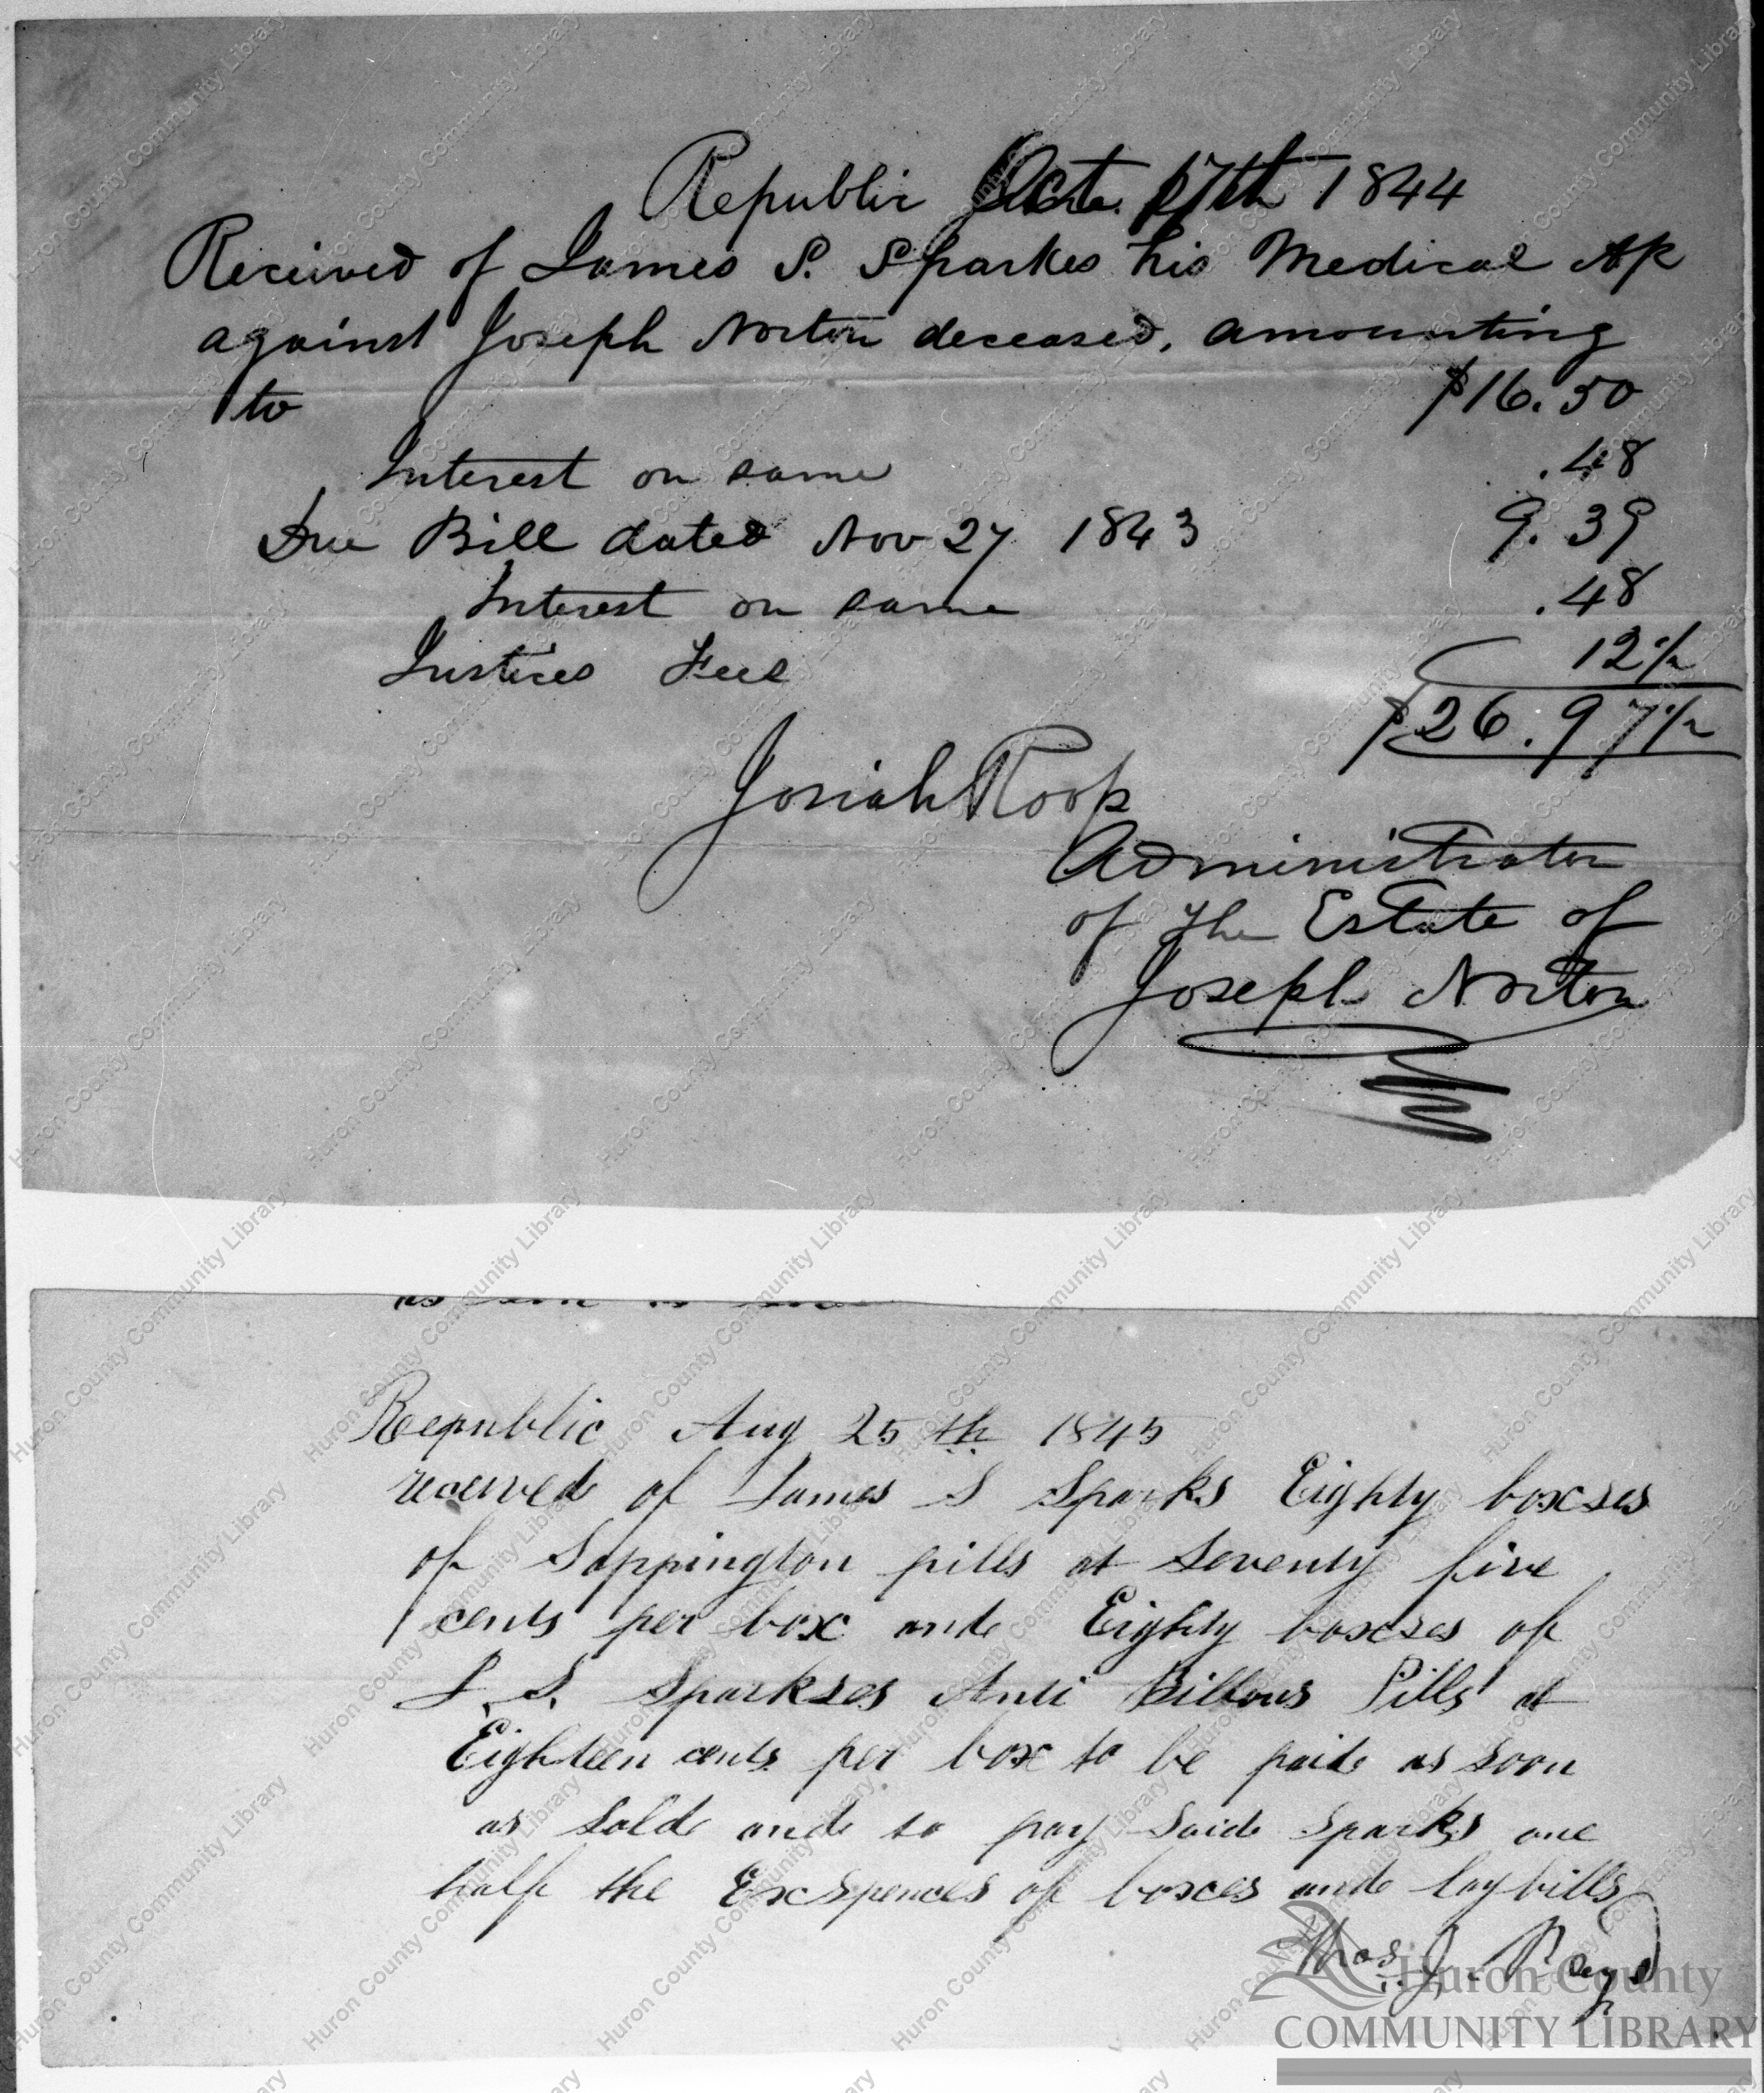 Republic Oct. 17th 1844
Received of James S. Sparkes his Medical A/c
against Joseph Norton deceased, amounting
to $16.50
Interest on same .48
Due Bill dated Nov 27 1843 9.39
Interest on same .48
Justices Fees 12½
$26.97½
Josiah Roop
Administrator
of the Estate of
Joseph Norton
Republic Aug 25th 1845
received of James S Sparks Eighty boxses
of Sappington pills at seventy five
cents per box and Eighty boxses of
J. S. Sparkses Anti Billous Pills at
Eighteen cents per box to be paid as soon
as sold and to pay said Sparks one
half the Exspences of boxes and laybills
Thos. J.
Huron County
COMMUNITY LIBRARY